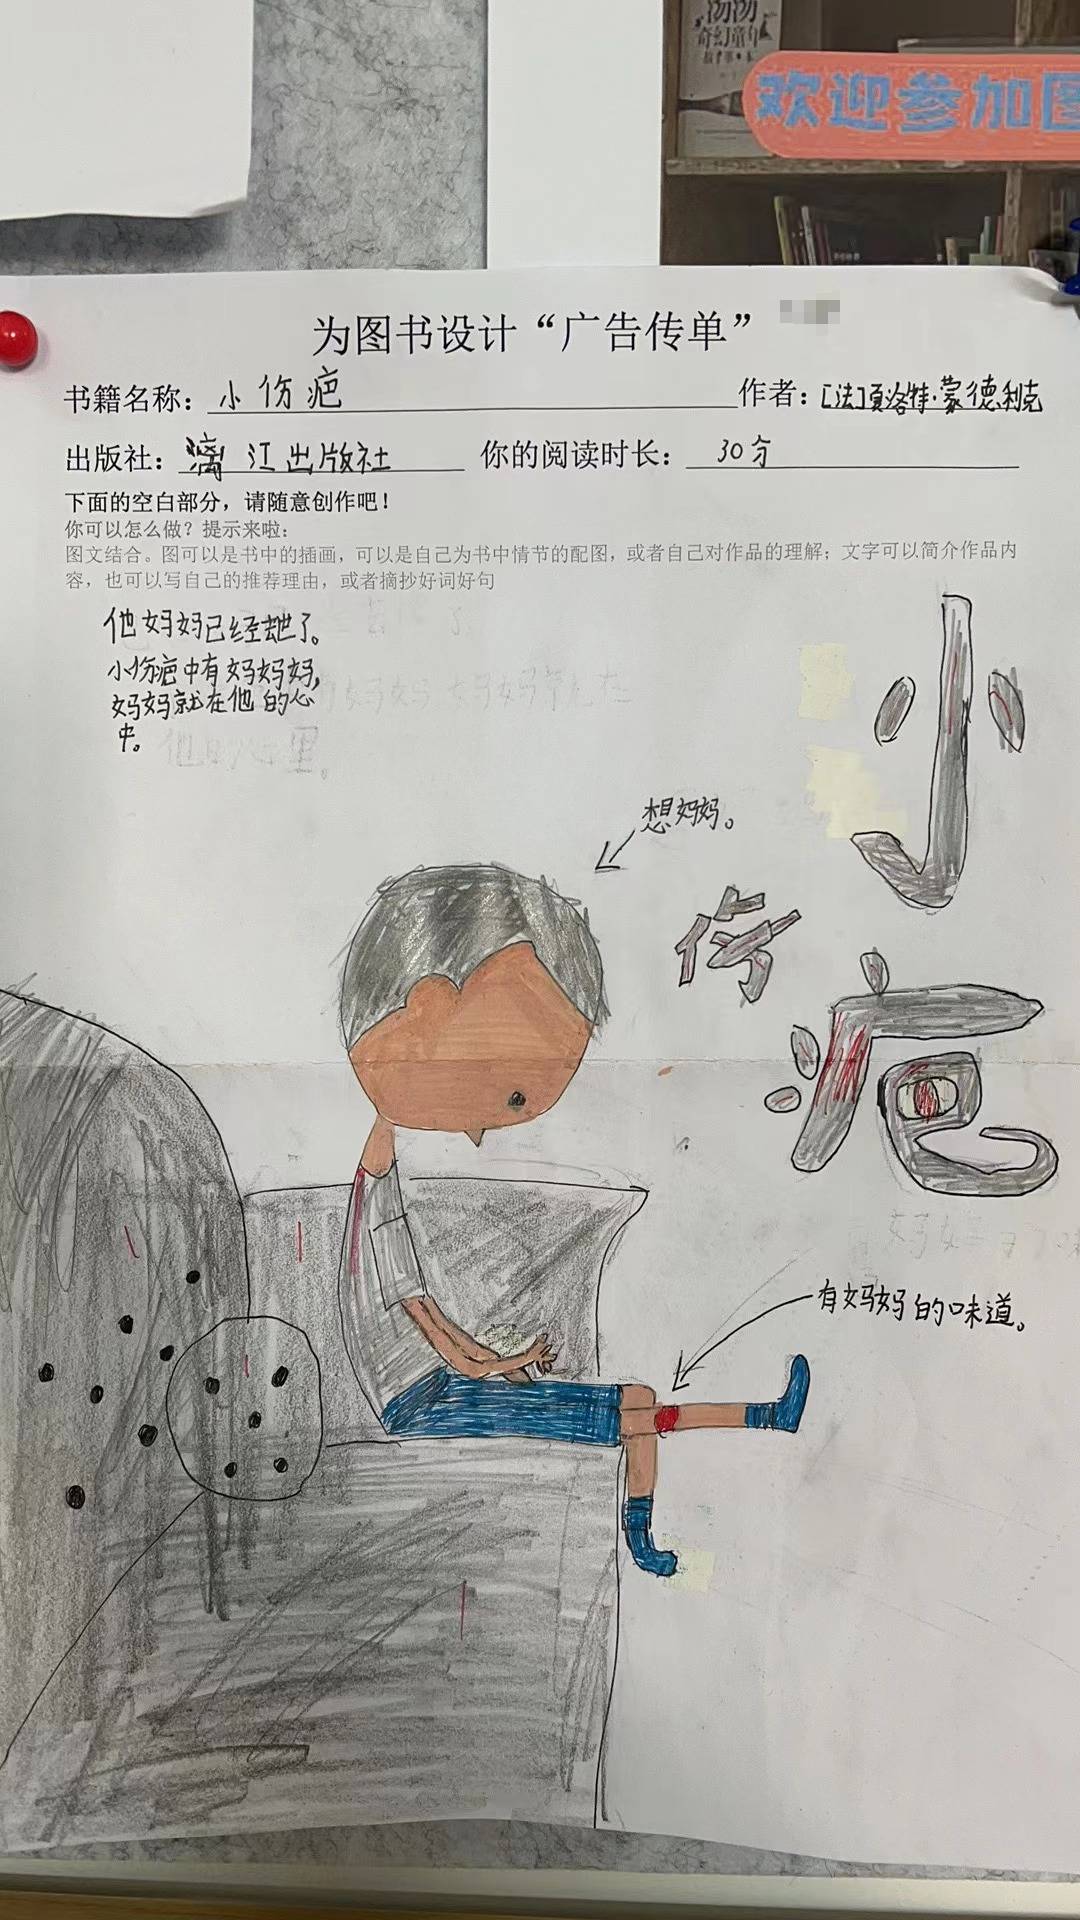 汤汤
奇幻童年
故事本
欢迎参加图
为图书设计“广告传单”
书籍名称：小伤疤 作者：[法]夏洛特·蒙德利克
出版社：漓江出版社 你的阅读时长：30分
下面的空白部分，请随意创作吧！
你可以怎么做？提示来啦：
图文结合。图可以是书中的插画，可以是自己为书中情节的配图，或者自己对作品的理解；文字可以简介作品内
容，也可以写自己的推荐理由，或者摘抄好词好句
他妈妈已经走了。
小伤疤中有妈妈妈，
妈妈就在他的心
中。
想妈妈。
小
伤
疤
有妈妈的味道。